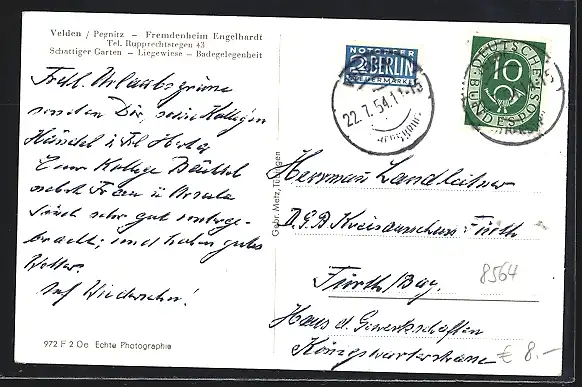 Velden / Pegnitz - Fremdenheim Engelhardt
Tel. Rupprechtstegen 43
Schattiger Garten - Liegewiese - Badegelegenheit
Frdl. Urlaubsgrüsse
senden Dir, seine Kollegen
Händel u. Frl. Herta
Euer Kollege
nebst Frau u. Ursula
sind sehr gut unterge-
bracht; und haben gutes
Wetter.
Auf Wiedersehn!
972 F 2 Oe Echte Photographie
Gebr. Metz, Tübingen
NOTOPFER
2 BERLIN
STEUERMARKE
22.7.54.11
DEUTSCHE
BUNDESPOST
10
Herrman Landleitner
D.G.B Kreisausschuss Fürth
Fürth/Bay.
8564
Haus d. Gewerkschaften
Königswarterstrasse
€ 8.-